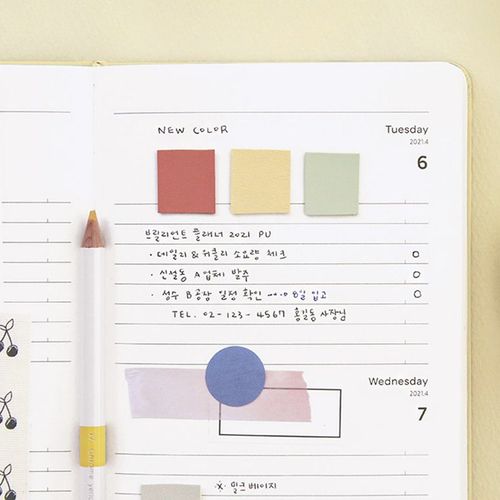 NEW COLOR
Tuesday
2021.4
6
브릴리언트 플래너 2021 PU
· 데일리 & 위클리 소요량 체크
· 신설동 A업체 발주
· 성수 B공장 일정 확인 → 8일 입고
TEL. 02-123-4567 홍길동 사장님
Wednesday
2021.4
7
밀크베이지